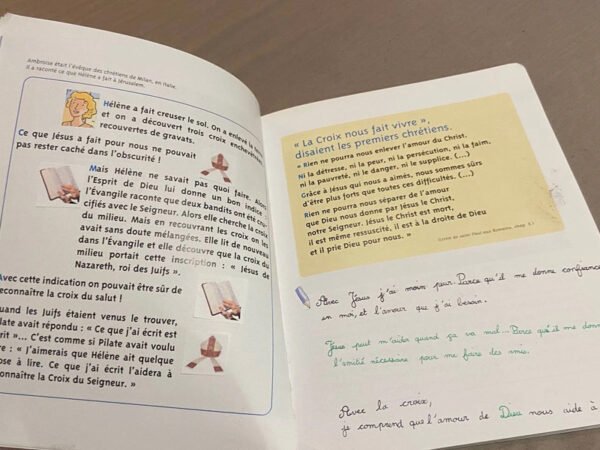 Ambroise était l'évêque des chrétiens de Milan, en Italie.
Il a raconté ce que Hélène a fait à Jérusalem.
Hélène a fait creuser le sol. On a enlevé la
et on a découvert trois croix enchevêtrées
recouvertes de gravats.
Ce que Jésus a fait pour nous ne pouvait
pas rester caché dans l'obscurité !
Mais Hélène ne savait pas quoi faire. Alors
l'Esprit de Dieu lui donne un bon indice :
l'Évangile raconte que deux bandits ont été cru-
cifiés avec le Seigneur. Alors elle cherche la croix
du milieu. Mais en recouvrant les croix on les
avait sans doute mélangées. Elle lit de nouveau
dans l'évangile et elle découvre que la croix du
milieu portait cette inscription : « Jésus de
Nazareth, roi des Juifs ».
Avec cette indication on pouvait être sûr de
reconnaître la croix du salut !
Quand les Juifs étaient venus le trouver,
Pilate avait répondu : « Ce que j'ai écrit est
écrit »... C'est comme si Pilate avait voulu
dire : « J'aimerais que Hélène ait quelque
chose à lire. Ce que j'ai écrit l'aidera à
connaître la Croix du Seigneur. »
« La Croix nous fait vivre »,
disaient les premiers chrétiens.
« Rien ne pourra nous enlever l'amour du Christ.
Ni la détresse, ni la peur, ni la persécution, ni la faim,
ni la pauvreté, ni le danger, ni le supplice. (...)
Grâce à Jésus qui nous a aimés, nous sommes sûrs
d'être plus forts que toutes ces difficultés. (...)
Rien ne pourra nous séparer de l'amour
que Dieu nous donne par Jésus le Christ,
notre Seigneur. Jésus le Christ est mort,
il est même ressuscité, il est à la droite de Dieu
et il prie Dieu pour nous. »
Lettre de saint Paul aux Romains, chap.
Avec Jésus j'ai moins peur. Parce qu'il me donne confiance
en moi, et l'amour que j'ai besoin.
Jésus peut m'aider quand ça va mal... Parce qu'il me donne
l'amitié nécessaire pour me faire des amis.
Avec la croix,
je comprend que l'amour de Dieu nous aide à